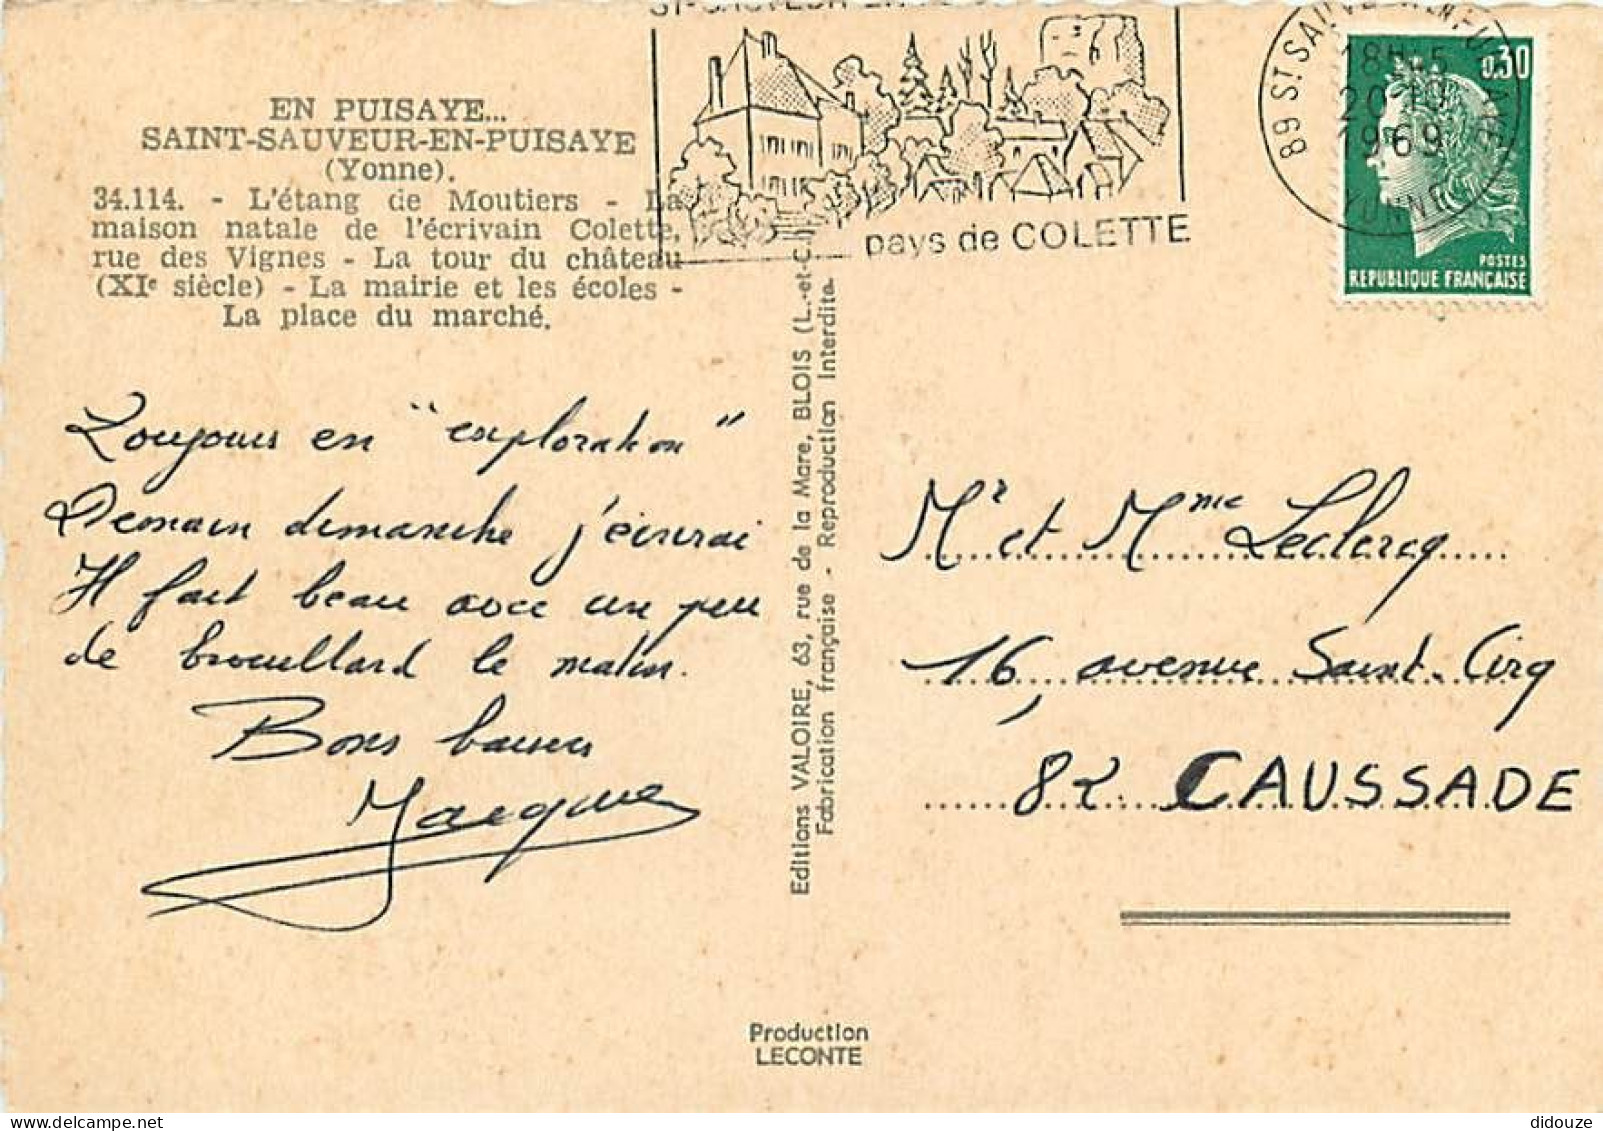 EN PUISAYE...
SAINT-SAUVEUR-EN-PUISAYE
(Yonne).
34.114. - L'étang de Moutiers - La
maison natale de l'écrivain Colette,
rue des Vignes - La tour du château
(XIe siècle) - La mairie et les écoles -
La place du marché.
pays de COLETTE
89 ST SAUVEUR EN PUISAYE
18H45
1969
YONNE
0,30
POSTES
REPUBLIQUE FRANÇAISE
Toujours en "exploration"
Demain dimanche j'écrirai
Il fait beau avec un peu
de brouillard le matin.
Bons baisers
Editions VALOIRE, 63, rue de la Mare, BLOIS (L.-et-C.)
Fabrication française - Reproduction Interdite.
Mr et Mme Leclercq
16, avenue Saint-Cirq
82 CAUSSADE
Production
LECONTE
didouze